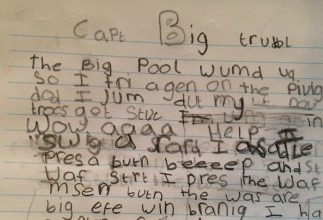 Capt Big trubbl
the Big Pool wumd up
So I tri agen on the Diving
dod I Jum but my it now
trocs got Stuc I
Wow aaaa Help I
swb a start I
presa butn beeeep and St
Waf Strt I pres the Waf
msen butn the was are
big efe win brang I ha